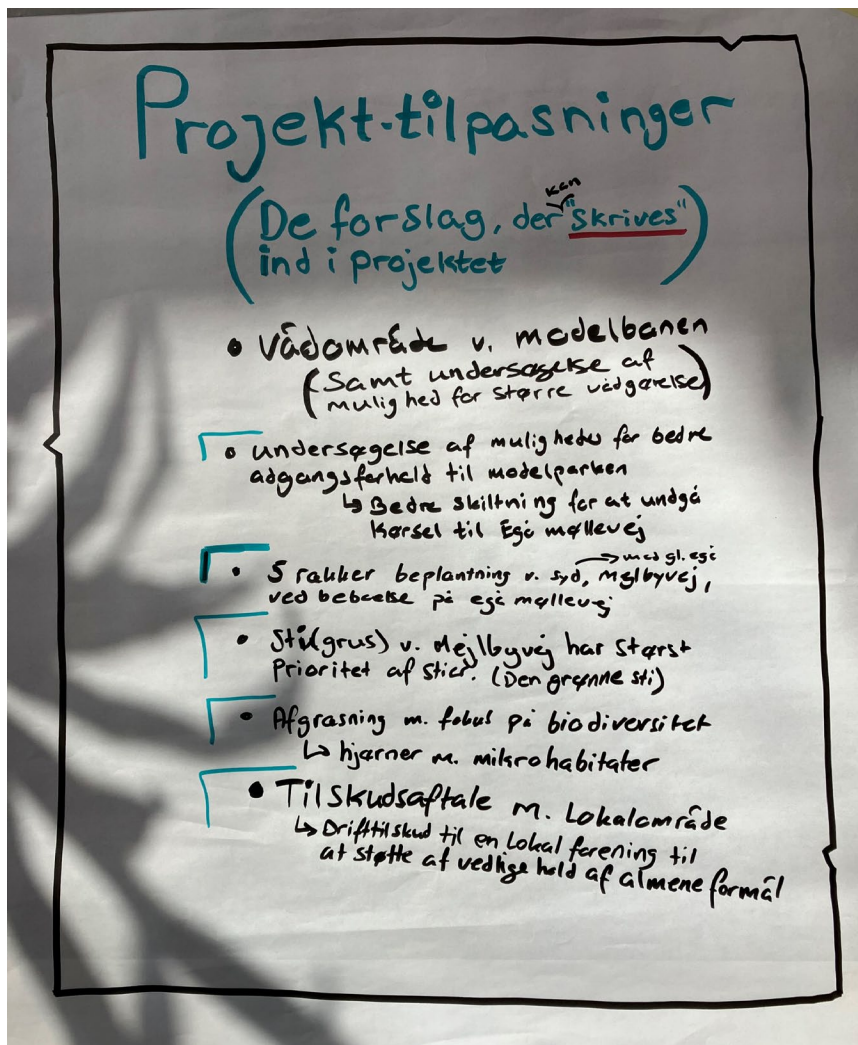 Projekt-tilpasninger
(De forslag, der kan "skrives"
ind i projektet)
• Vådområde v. modelbanen
(Samt undersøgelse af
mulighed for større vådgørelse)
• undersøgelse af muligheder for bedre
adgangsforhold til modelparken
↳ Bedre skiltning for at undgå
Kørsel til Egå møllevej
• 5 rækker beplantning v. syd, Mejlbyvej, → mod gl. egå
ved beboelse på egå møllevej
• Sti(grus) v. Mejlbyvej har størst
Prioritet af stier. (Den grønne sti)
• Afgræsning m. fokus på biodiversitet
↳ hjørner m. mikrohabitater
• Tilskudsaftale m. Lokalområde
↳ Drifttilskud til en Lokal forening til
at støtte af vedlige hold af almene formål